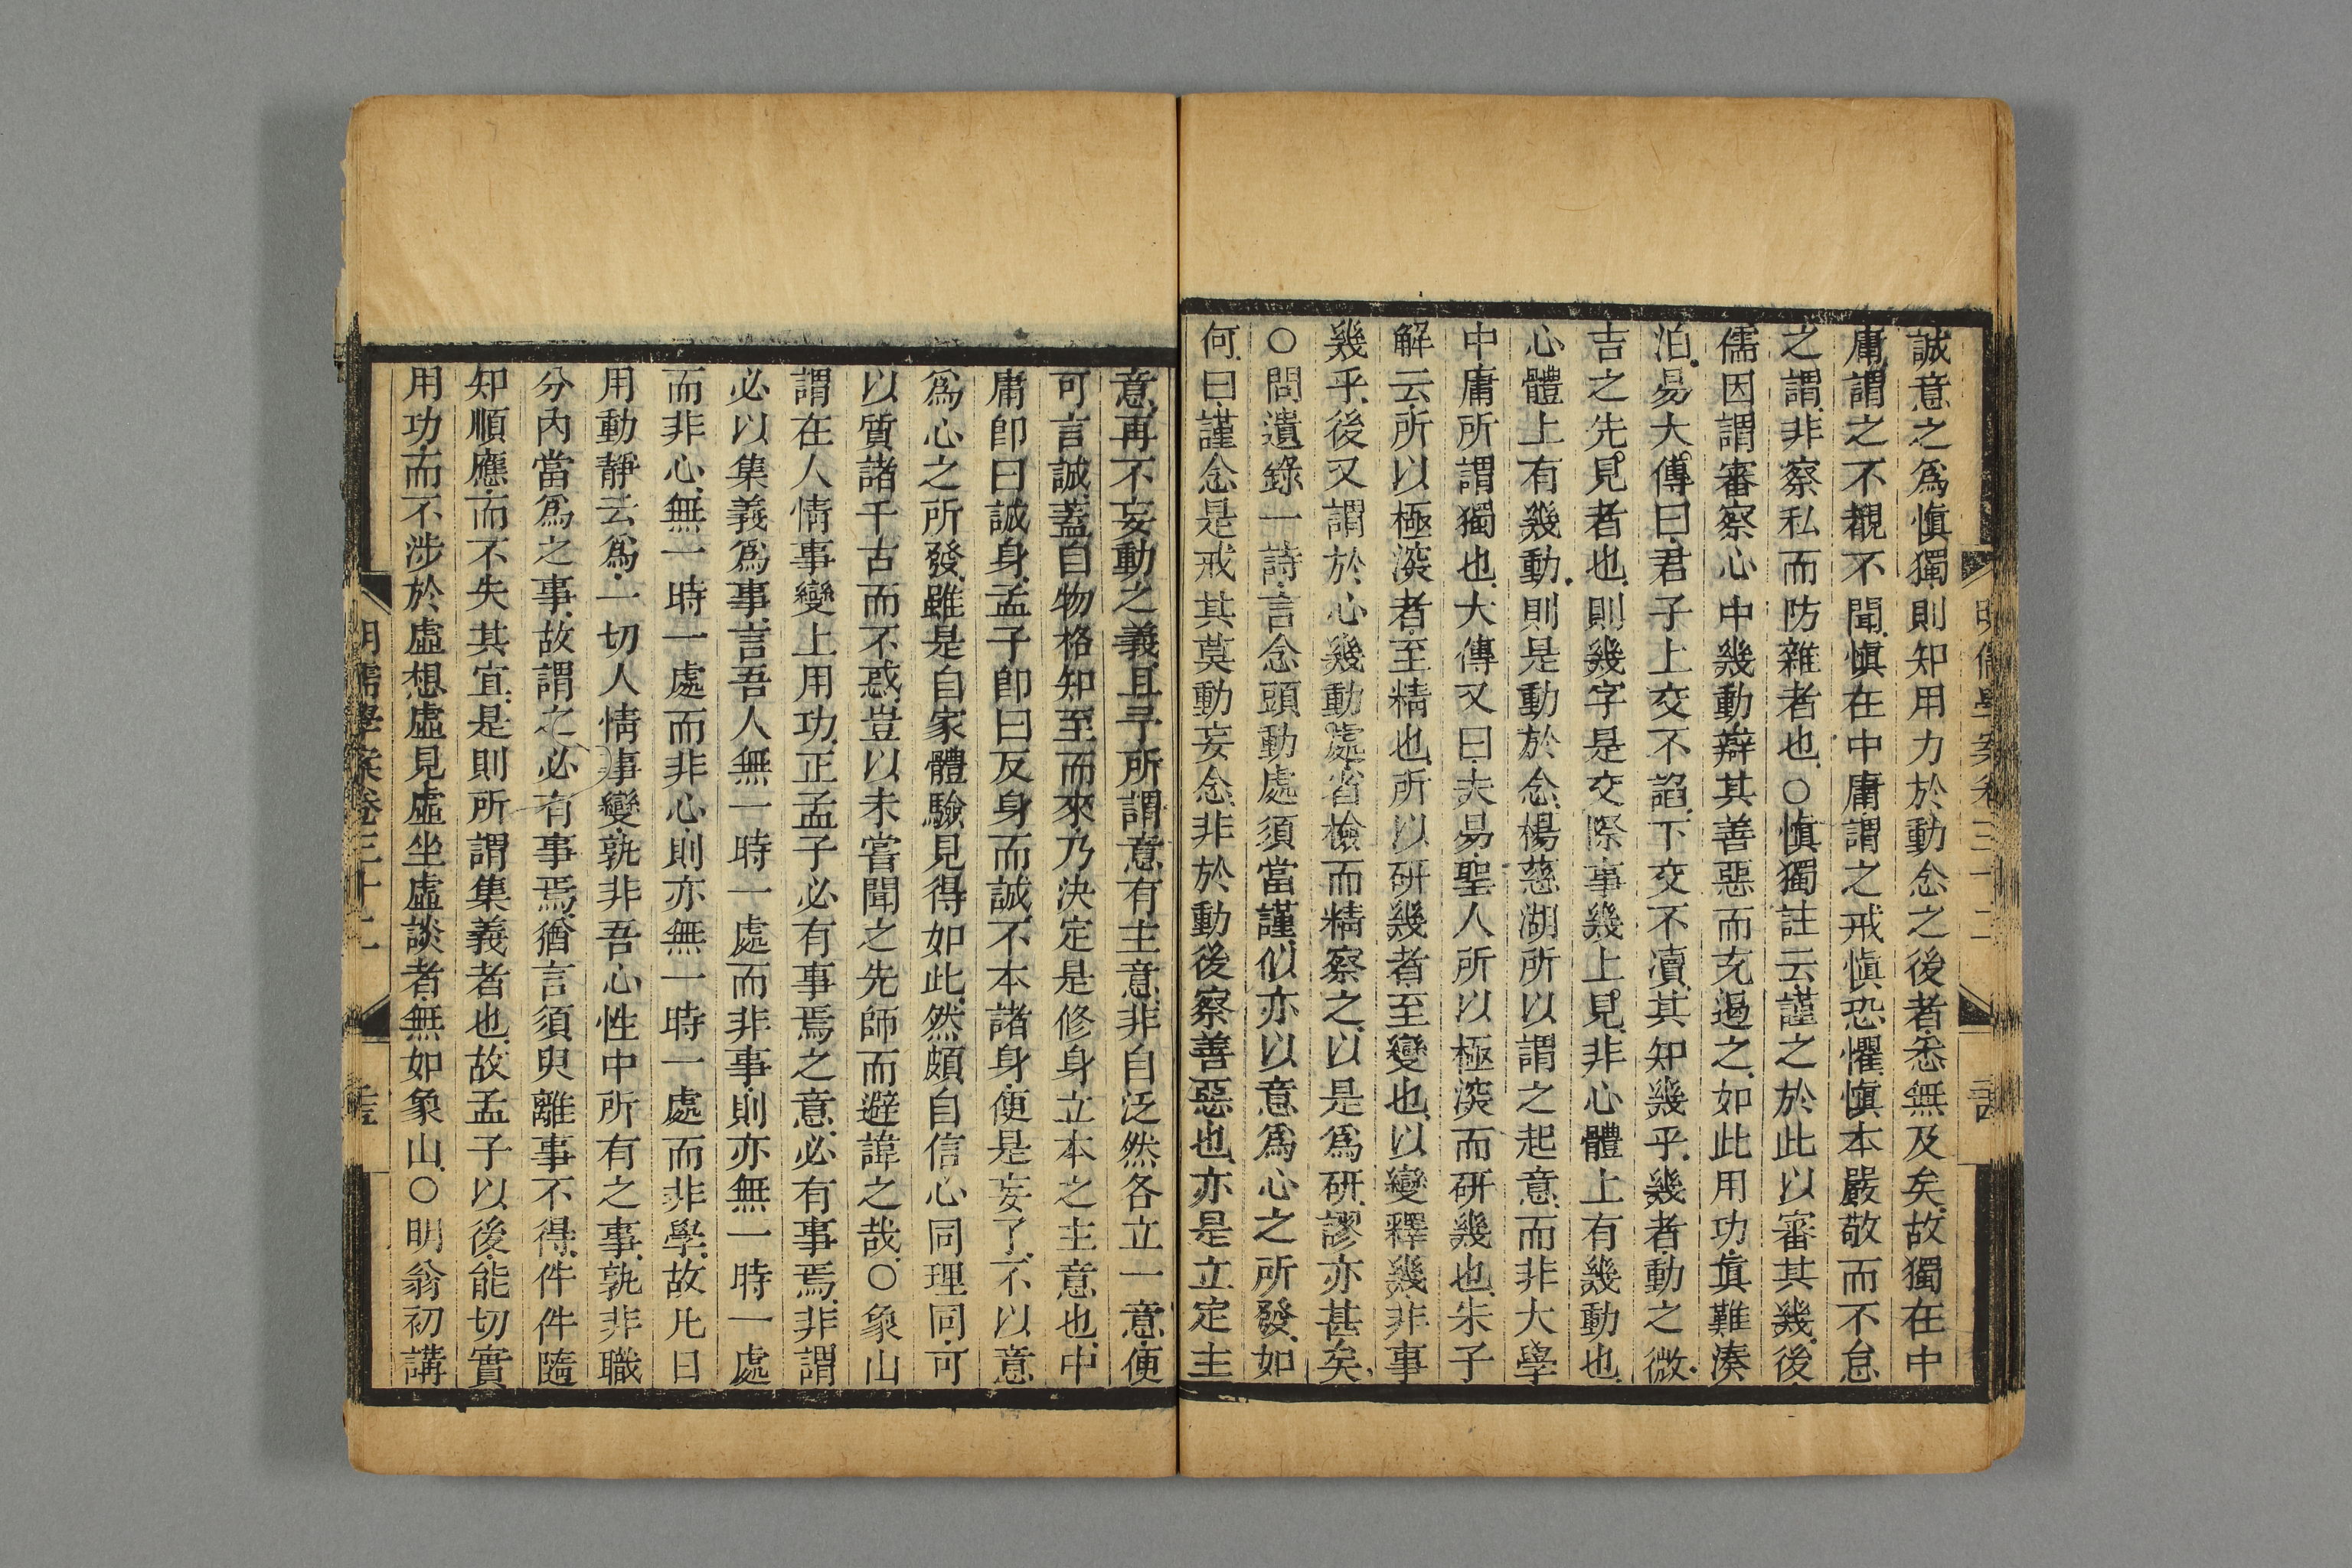 誠意之爲慎獨則知用力於動念之後者悉無及矣故獨在中
庸謂之不覩不聞慎在中庸謂之戒慎恐懼慎本嚴敬而不怠
之謂非察私而防雜者也○慎獨註云謹之於此以審其幾後
儒因謂審察心中幾動辯其善惡而克遏之如此用功眞難湊
泊易大傳曰君子上交不謟下交不瀆其知幾乎幾者動之微
吉之先見者也則幾字是交際事幾上見非心體上有幾動也
心體上有幾動則是動於念楊慈湖所以謂之起意而非大學
中庸所謂獨也大傳又曰夫易聖人所以極深而研幾也朱子
解云所以極深者至精也所以研幾者至變也以變釋幾非事
幾乎後又謂於心幾動處省檢而精察之以是爲研謬亦甚矣
○問遺錄一詩言念頭動處須當謹似亦以意爲心之所發如
何曰謹念是戒其莫動妄念非於動後察善惡也亦是立定主
意再不妄動之義且予所謂意有主意非自泛然各立一意便
可言誠蓋自物格知至而來乃決定是修身立本之主意也中
庸卽曰誠身孟子卽曰反身而誠不本諸身便是妄了不以意
爲心之所發雖是自家體驗見得如此然頗自信心同理同可
以質諸千古而不惑豈以未嘗聞之先師而避諱之哉○象山
謂在人情事變上用功正孟子必有事焉之意必有事焉非謂
必以集義爲事言吾人無一時一處而非事則亦無一時一處
而非心無一時一處而非心則亦無一時一處而非學故凡日
用動靜云爲一切人情事變孰非吾心性中所有之事孰非職
分內當爲之事故謂之必有事焉猶言須臾離事不得件件隨
知順應而不失其宜是則所謂集義者也故孟子以後能切實
用功而不涉於虛想虛見虛坐虛談者無如象山○明翁初講
明儒學案卷三十二